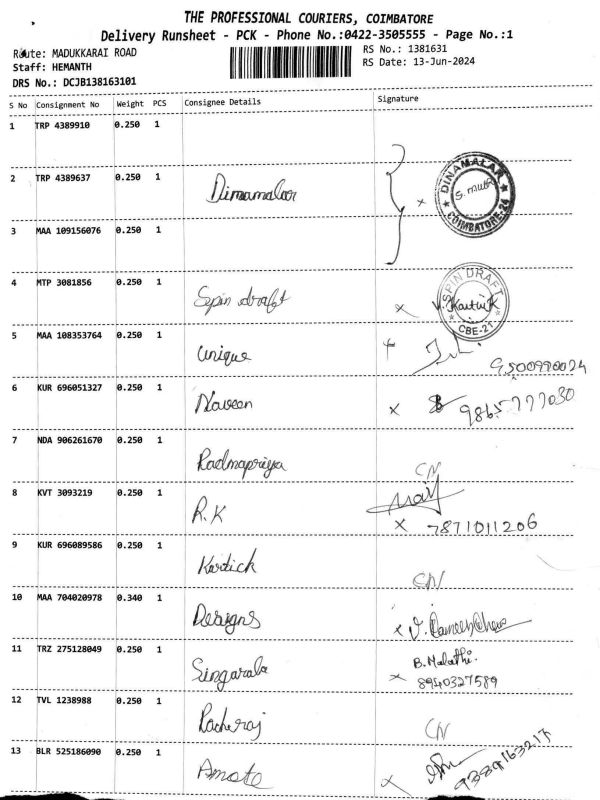 THE PROFESSIONAL COURIERS, COIMBATORE
Delivery Runsheet - PCK - Phone No.:0422-3505555 - Page No.:1
Route: MADUKKARAI ROAD
RS No.: 1381631
Staff: HEMANTH
RS Date: 13-Jun-2024
DRS No.: DCJB138163101
S No Consignment No Weight PCS Consignee Details Signature
1 TRP 4389910 0.250 1
2 TRP 4389637 0.250 1 Dinamalar x DINAMALAR COIMBATORE-24
3 MAA 109156076 0.250 1
4 MTP 3081856 0.250 1 Spin draft x V. Karthik SPIN DRAFT CBE-21
5 MAA 108353764 0.250 1 unique
6 KUR 696051327 0.250 1 Naveen x 9865777030
7 NDA 906261670 0.250 1 Padmapriya CN
8 KVT 3093219 0.250 1 R.K x 7871011206
9 KUR 696089586 0.250 1 Kartick CN
10 MAA 704020978 0.340 1 Designs x
11 TRZ 275128049 0.250 1 B. Malathi. x 8940327589
12 TVL 1238988 0.250 1 CN
13 BLR 525186090 0.250 1 x